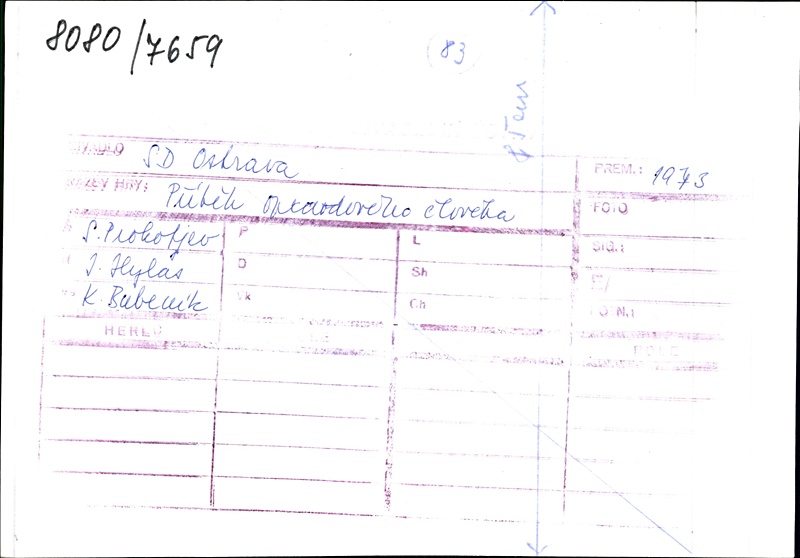 8080/7659
83
DIVADLO SD Ostrava
PREM.: 1973
NÁZEV HRY: Příběh opravdového člověka
FOTO
S. Prokofjev
P
L
SIG.:
I. Hylas
D
Sh
K. Bubeník
Vk
Ch
Č. N.:
HEREC
ROLE